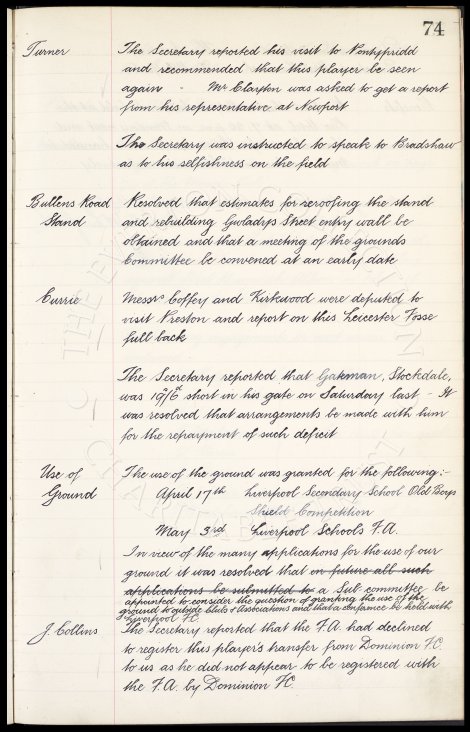 74
Turner The Secretary reported his visit to Pontypridd
and recommended that this player be seen
again - Mr Clayton was asked to get a report
from his representative at Newport
The Secretary was instructed to speak to Bradshaw
as to his selfishness on the field
Bullens Road Resolved that estimates for reroofing the stand
Stand and rebuilding Gwladys Street entry wall be
obtained and that a meeting of the grounds
Committee be convened at an early date
Currie Messrs Coffey and Kirkwood were deputed to
visit Preston and report on this Leicester Fosse
full back
The Secretary reported that Gateman, Stockdale,
was 19/6 short in his gate on Saturday last - It
was resolved that arrangements be made with him
for the repayment of such deficit
Use of The use of the ground was granted for the following:-
Ground April 17th Liverpool Secondary School Old Boys
Shield Competition
May 3rd Liverpool Schools F.A.
In view of the many applications for the use of our
ground it was resolved that in future all such
applications be submitted to a Sub-committee be
appointed to consider the question of granting the use of the
ground to outside Clubs & Associations and that a conference be held with
Liverpool F.C.
J. Collins The Secretary reported that the F.A. had declined
to register this player's transfer from Dominion F.C.
to us as he did not appear to be registered with
the F.A. by Dominion F.C.